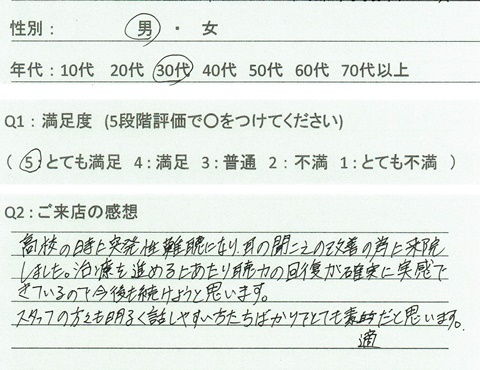 性別： 男 ・ 女
年代：10代 20代 30代 40代 50代 60代 70代以上
Q1：満足度 (5段階評価で〇をつけてください)
( 5：とても満足 4：満足 3：普通 2：不満 1：とても不満 )
Q2：ご来店の感想
高校の時に突発性難聴になり、耳の聞こえの改善の為に来院
しました。治療を進めるにあたり聴力の回復が確実に実感で
きているので今後も続けようと思います。
スタッフの方々も明るく話しやすい方たちばかりでとても素敵だと思います。
適